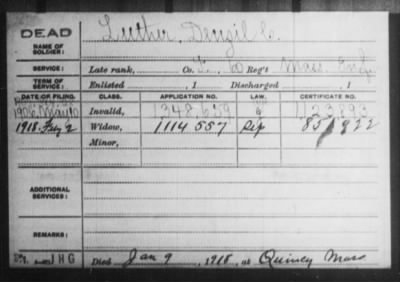 DEAD
NAME OF SOLDIER: Luther, Denzil C.
SERVICE: Late rank, Co. 60 Reg't Mass. Inf
TERM OF SERVICE: Enlisted , 1 Discharged , 1
DATE OF FILING. CLASS. APPLICATION NO. LAW. CERTIFICATE NO.
1906 May 10 Invalid, 1348,659 1123,893
1918. Feby 2 Widow, 1114557 Sep 851922
Minor,
ADDITIONAL SERVICES:
REMARKS:
JHG Died Jan 9, 1918, at Quincy Mass